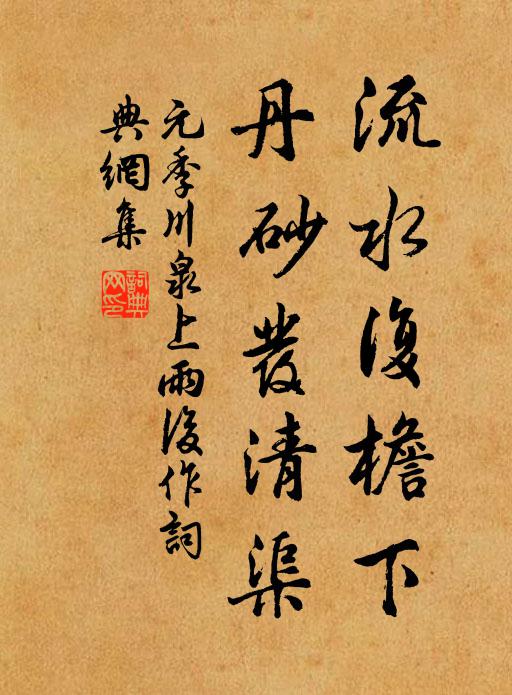 流水復檐下
丹砂發清渠
元季川泉上雨後作詞
典網集
詞典網印